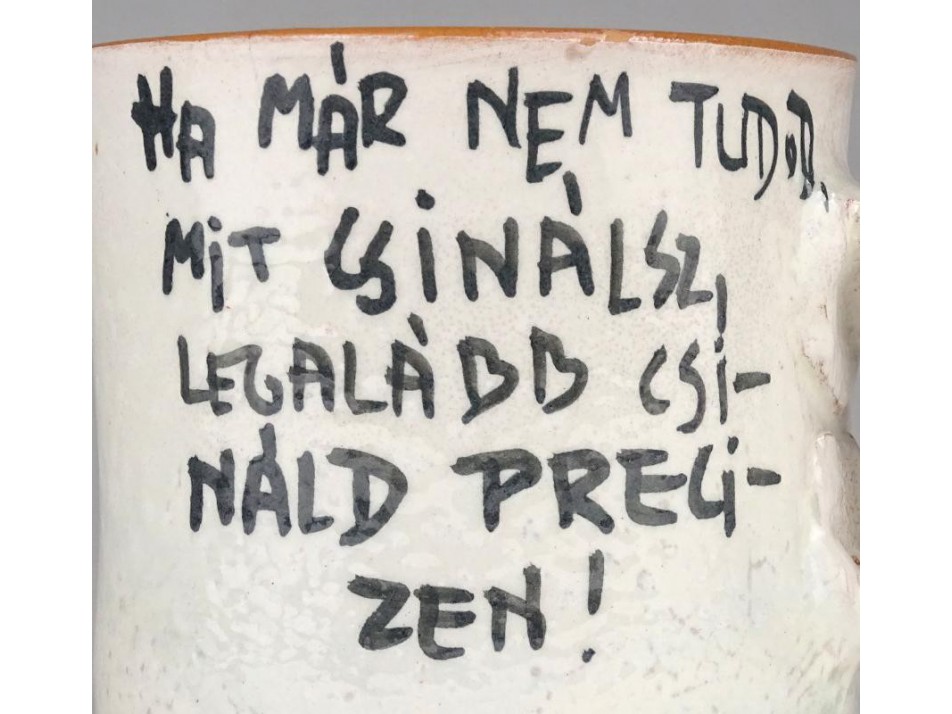 HA MÁR NEM TUDOD,
MIT CSINÁLSZ,
LEGALÁBB CSI-
NÁLD PRECI-
ZEN!